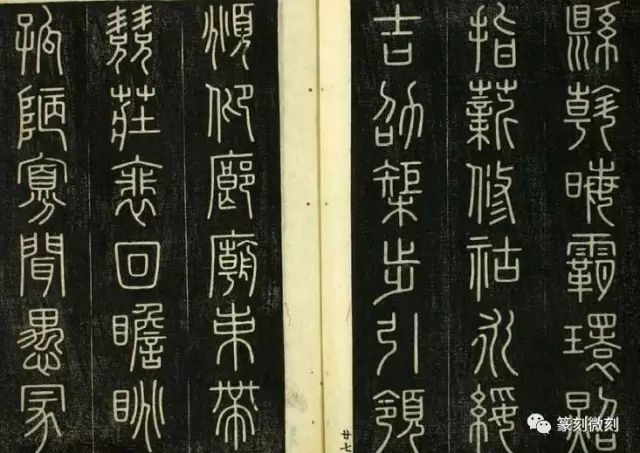 縣斡晦霸環照
指薪修祜永綏
吉劭榘步引領
頫仰廊廟束帶
兢莊裵回瞻眺
孤陋寡聞愚冡
廿七
篆刻微刻